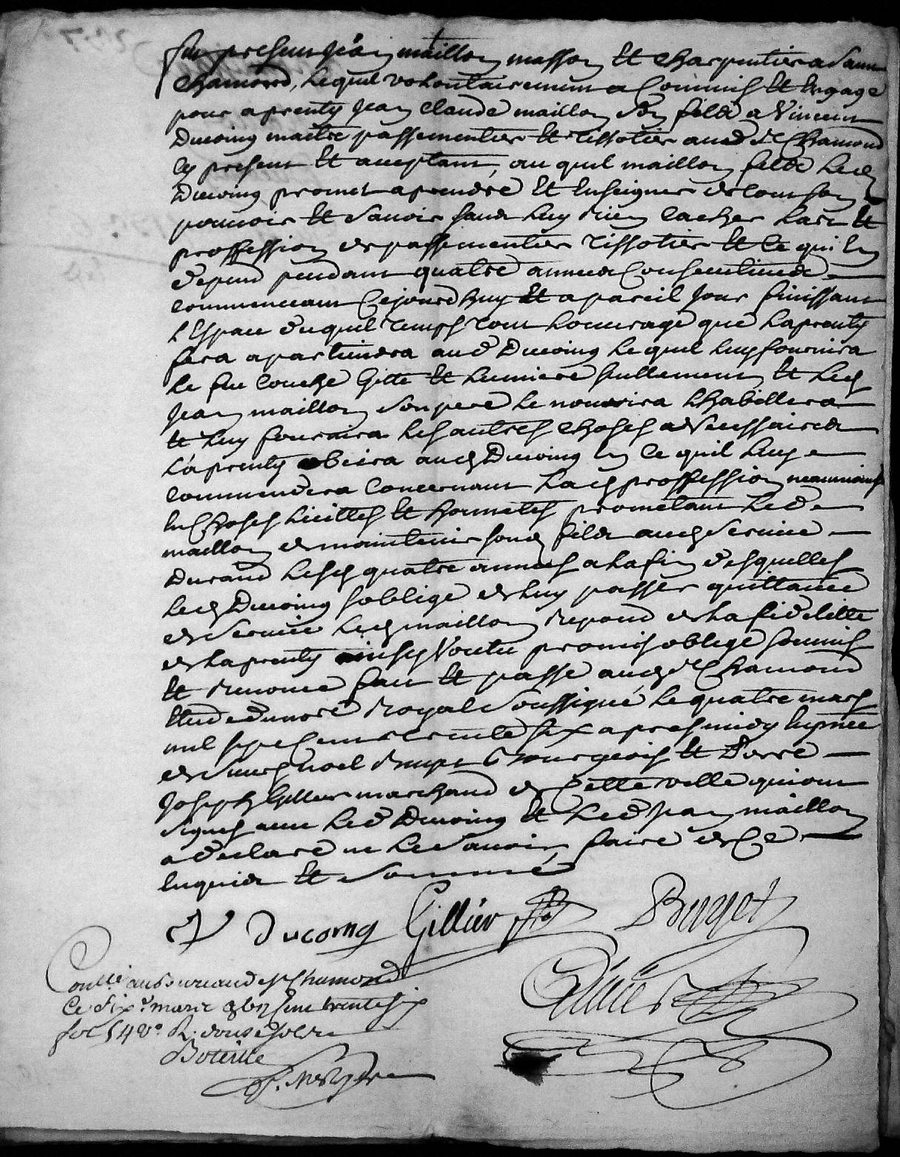 Fut present Jean maillon masson Et Charpentier a Saint
Chamond, Lequel volontairement a Commis Et Engage
pour aprenty Jean Claude maillon Son fils a Vincent
Ducoing maitre passementier Et Tissotier aud St Chamond
Cy present Et acceptant, au quel maillon fils Led
Ducoing promet aprendre Et Enseigner de tout Son
pouvoir Et Savoir sans Luy Rien Cacher Lart Et
proffession de passementier Tissotier Et Ce qui En
depend pendant quatre années Consecutives
commencant Cejourdhuy Et a pareil Jour finissant
l'Espace duquel Temps tout Louvrage que Laprenty
fera apartiendra aud Ducoing Lequel Luy fournira
Le feu Couche Gitte Et Lumiere seullement Et Led
Jean maillon Son pere Le nourrira Lhabillera
Et Luy fournira Les autres Choses necessaires
L'aprenty obeira aud Ducoing En Ce quil Luy
commendera Concernant Lad proffession neanmoins
En Choses Licittes Et honnetes prometant Led
maillon de maintenir Sond fils aud Service
Durand Lesd quatre années a la fin desquelles
Led Ducoing soblige de Luy passer quittance
de Service Led maillon Repond de La fidelitté
de Laprenty ainsy Voulu promis oblige Soumis
Et Renoncé fait Et passé aud St Chamond
Etude du nore Royal Soussigné Le quatre mars
mil sept cent trente six apres midy En pnce
de Sieurs noel Buget Bourgeois Et
Joseph Gillier marchand de Cette ville qui ont
Signé avec Led Ducoing Et Led Jean maillon
a declaré ne Le Savoir faire de Ce
Enquis Et Sommé
V Ducoing Gillier Buget
Conllé au Bureau de St Chamond
Ce dix mars sept cent trente six
fol 54 vo R. douze Sols